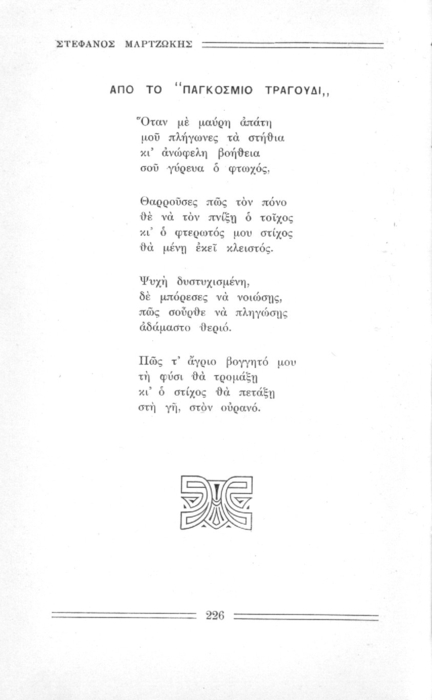 ΣΤΕΦΑΝΟΣ ΜΑΡΤΖΩΚΗΣ
ΑΠΟ ΤΟ "ΠΑΓΚΟΣΜΙΟ ΤΡΑΓΟΥΔΙ,,
Ὅταν μὲ μαύρη ἀπάτη
μοῦ πλήγωνες τὰ στήθια
κι' ἀνώφελη βοήθεια
σοῦ γύρευα ὁ φτωχός,
Θαρροῦσες πῶς τὸν πόνο
θὲ νὰ τὸν πνίξῃ ὁ τοῖχος
κι' ὁ φτερωτός μου στίχος
θὰ μένῃ ἐκεῖ κλειστός.
Ψυχὴ δυστυχισμένη,
δὲ μπόρεσες νὰ νοιώσῃς,
πῶς σοῦρθε νὰ πληγώσῃς
ἀδάμαστο θεριό.
Πῶς τ' ἄγριο βογγητό μου
τὴ φύσι θὰ τρομάξῃ
κι' ὁ στίχος θὰ πετάξῃ
στὴ γῆ, στὸν οὐρανό.
226